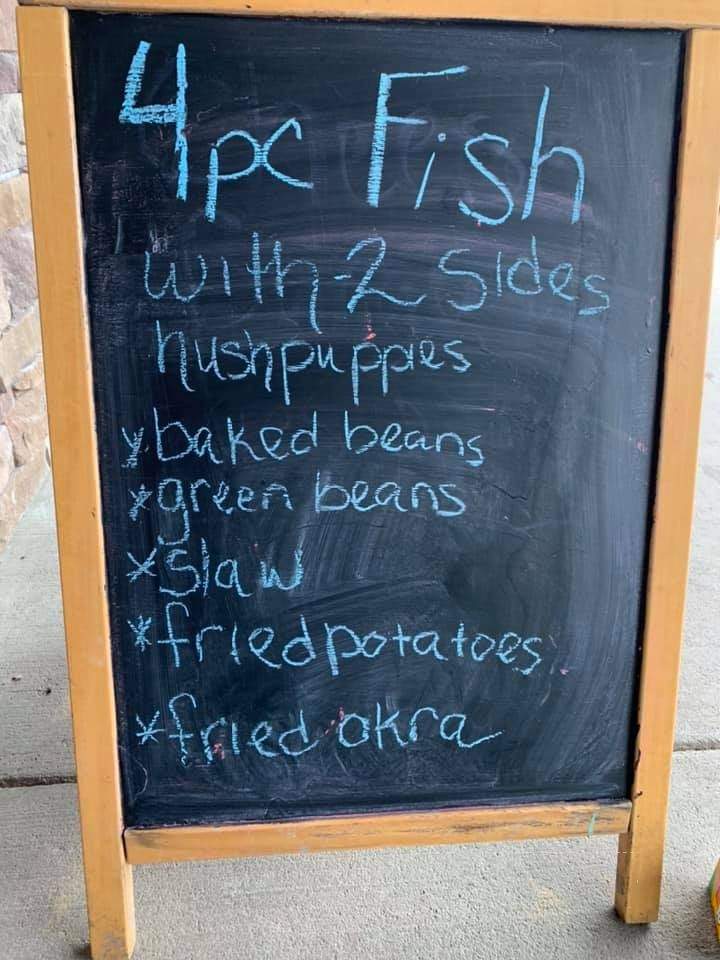 4pc Fish
with 2 sides
hushpuppies
*baked beans
*green beans
*slaw
*fried potatoes
*fried okra